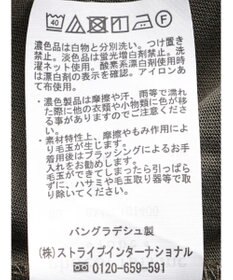 濃色品は白物と分別洗い。つけ置き
禁止。淡色は蛍光増白剤禁止。洗
濯ネット使用。酸素系漂白剤は漂
白剤の表示を確認。アイロンあ
て布使用。
・濃色製品は摩擦や汗、雨等で濡れ
た際に他の衣類や小物類に色が移
る事がありますのでご注意くださ
い。
・素材特性上、摩擦やもみ作用によ
り毛玉が生じることがあります。
着用後はブラッシングによるお手
入れをおすすめします。
毛玉ができてしまったら引っぱら
ずに、ハサミや毛玉取り器等で取
り除いてください。
バングラデシュ製
(株)ストライプインターナショナル
0120-659-591